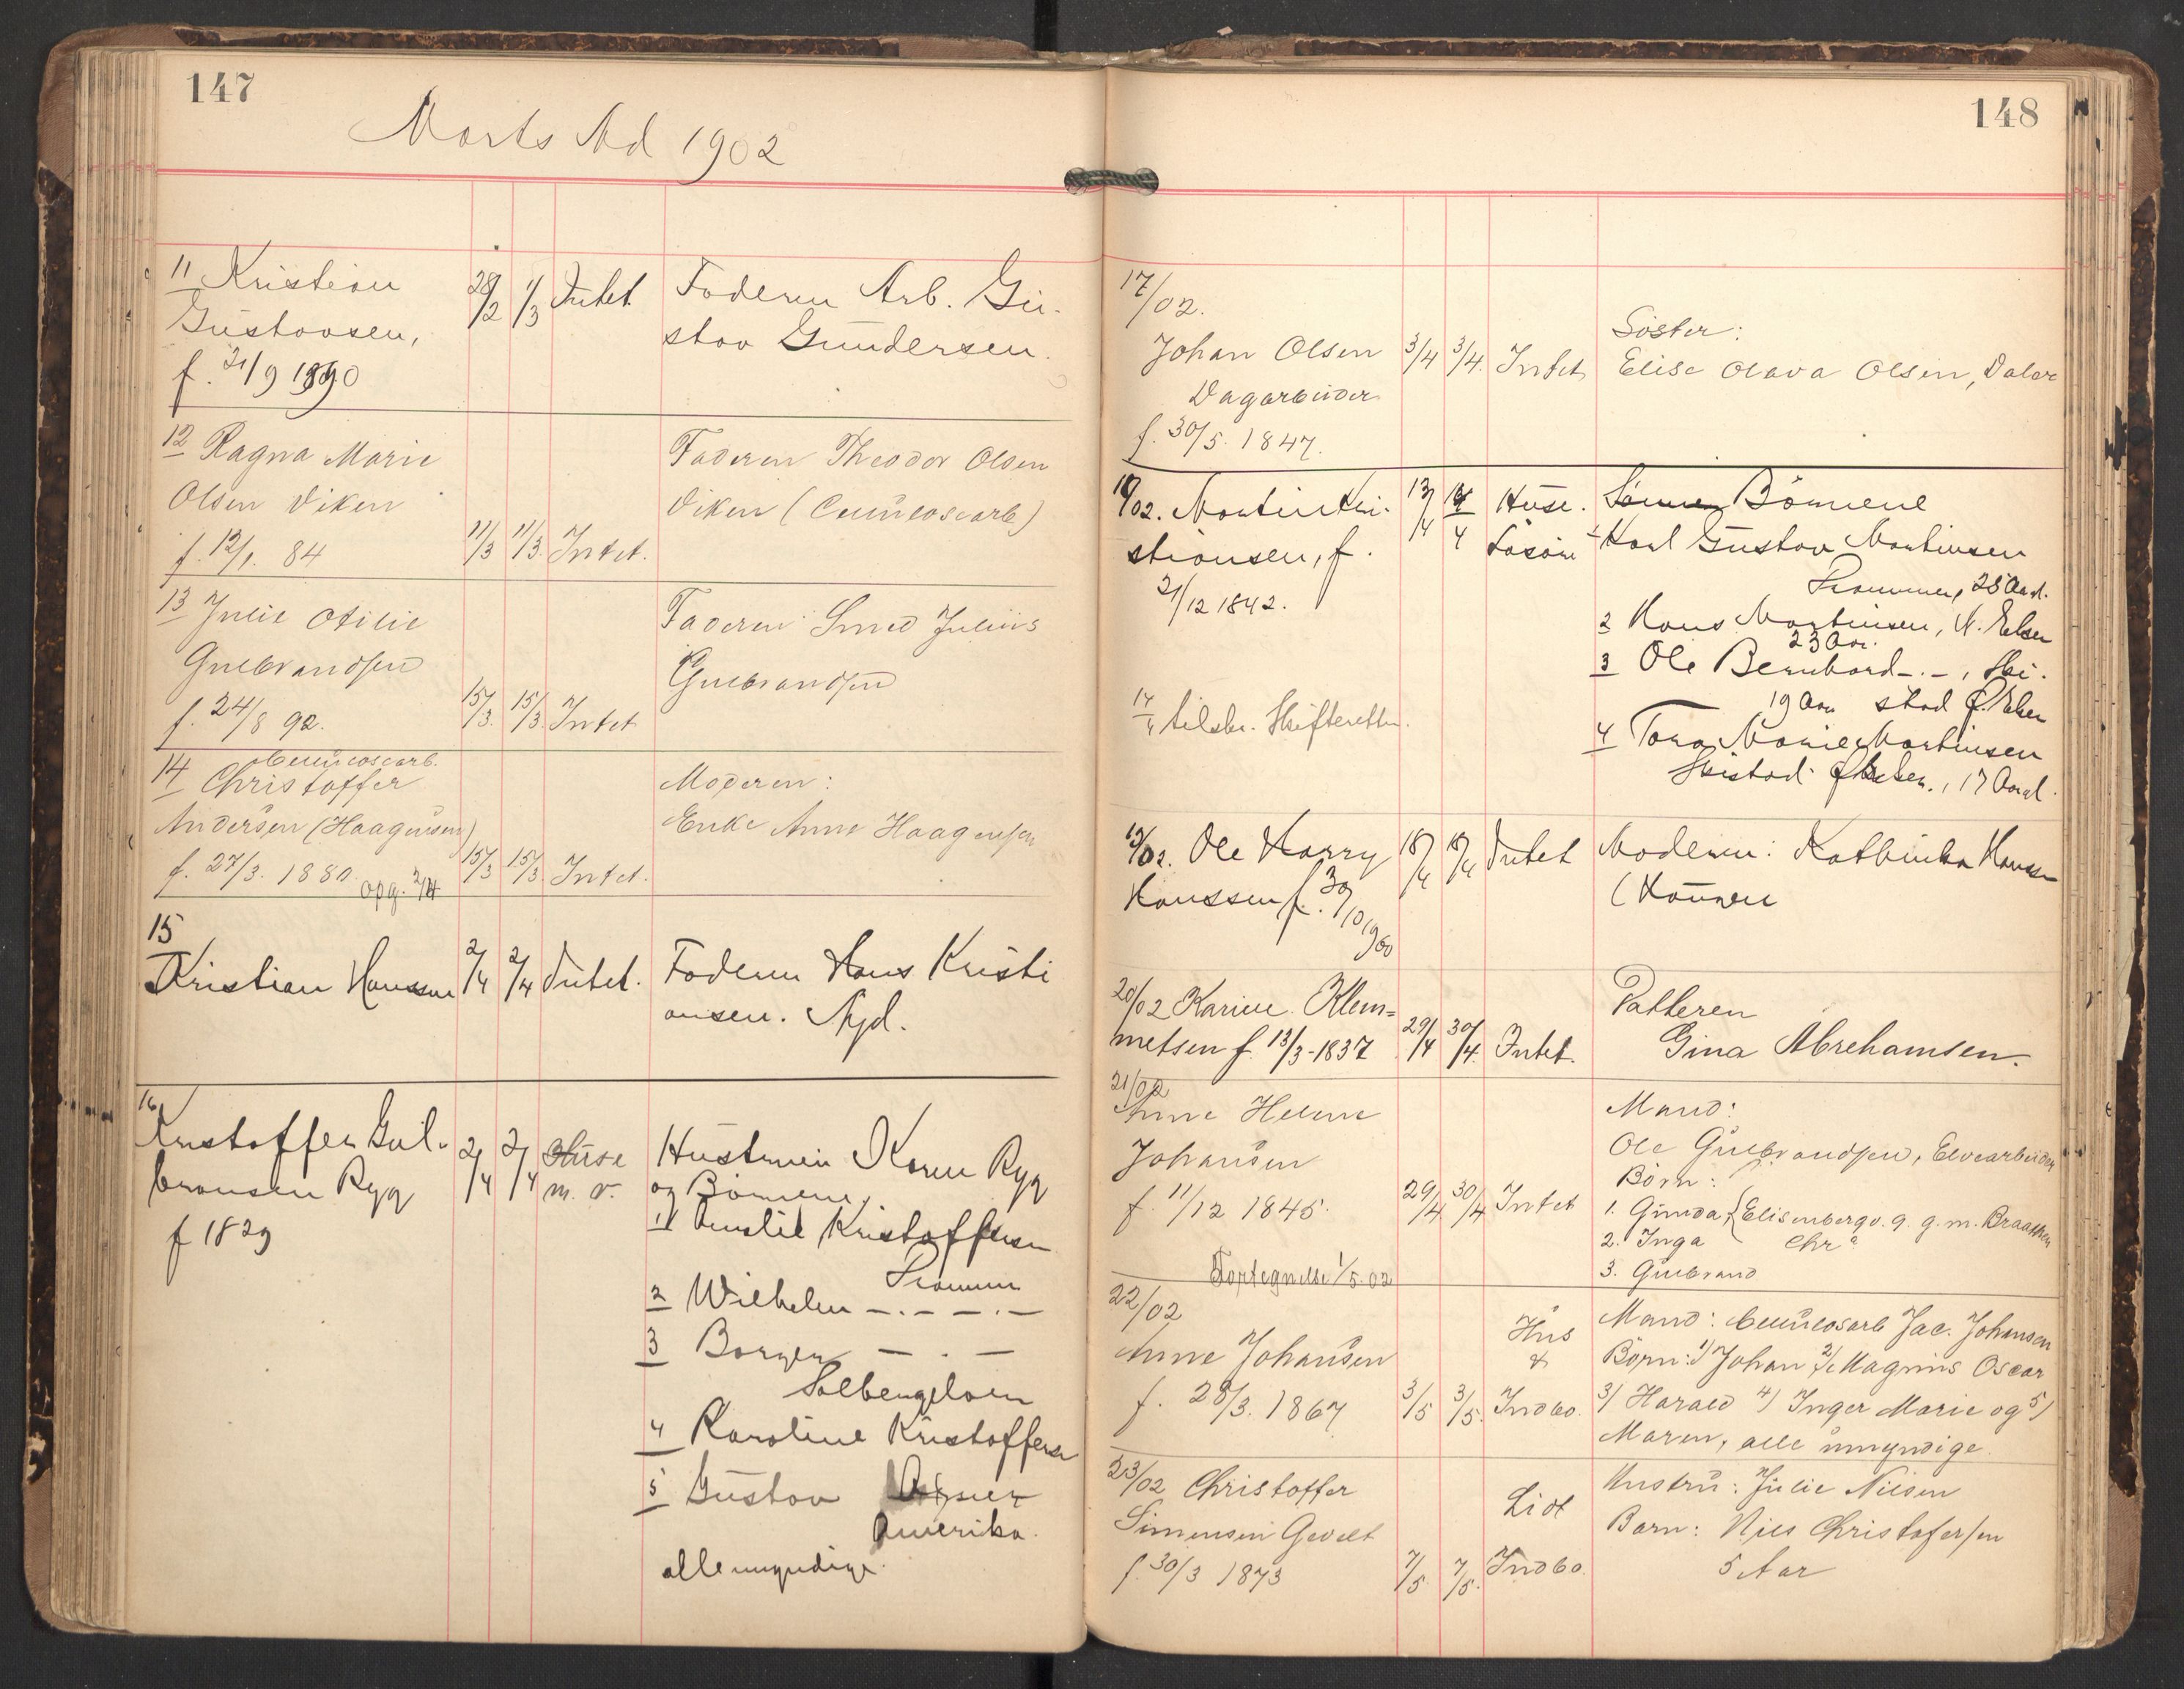 147
Marts Md 1902
11 Kristian Gustavsen, f. 21/9 1890
28/2 1/3 Intet
Faderen Arb. Gu-
stav Gundersen.
12 Ragna Marie
Olsen Viken
f. 12/1. 84
11/3 11/3. Intet.
Faderen Theodor Olsen
Viken (Cellulosearb)
13 Julie Otilie
Gulbrandsen
f. 24/8 92.
15/3. 15/3. Intet
Faderen: Smed Julius
Gulbrandsen
14 Cellulosearb.
Christoffer
Andersen (Haagensen)
f. 27/3. 1880.
opg. 2/4
15/3 15/3. Intet.
Moderen:
Enke Anne Haagensen
15
Kristian Hanssen
2/4 2/4 Intet.
Faderen Hans Kristi
ansen. Nyd.
16
Kristoffer Gul-
bransen Ryg
f 1829
2/4 2/4 Huse
m. v.
Hustruen Karen Ryg
og Börnene,
1 Kristoffersen
Drammen
2 Wilhelm -.- -.-
3 Borger - . -
4 Karoline Kristoffersen
5 Gustav
Amerika.
alle umyndige.
148
17/02.
Johan Olsen
Dagarbeider
f. 30/5. 1847.
3/4 3/4. Intet
Söster:
Elise Olava Olsen, Daler
18/02. Martin Kri-
stiansen, f.
21/12 1842.
13/4 14/4 Huse.
Lösöre
14/4 tilskr. Skifteretten.
Börnene
1 Karl Gustav Martinsen
Drammen, 28 Aar.
2 Hans Martinsen, N. Eker
23 Aar.
3 Ole Bernhard -.-, Ski-
19 Aar stad Ø. Eker
4 Tora Marie Martinsen
Skistad Ø. Eker., 17 Aar
19/02. Ole Harry
Hanssen f. 30/10 1900
18/4 18/4 Intet
Moderen: Kathinka Hanssen
20/02 Karine Klem-
metsen f. 13/3-1837
29/4 30/4. Intet.
Datteren
Gina Abrehamsen.
21/02
Anne Helene
Johansen
f. 11/12 1845.
29/4 30/4 Intet
Fortegnelse 1/5. 02
Mand:
Ole Gulbrandsen, Elvearbeider
Börn:
1. Gunda, Elisenbergv. 9. g. m. Braathen
2. Inga Chr.a
3. Gulbrand
22/02
Anne Johansen
f. 28/3. 1867
3/5 3/5. Hus
&
Indbo.
Mand: Cellulosearb Jac. Johansen
Börn: 1/ Johan 2/ Magnus Oscar
3/ Harald 4/ Inger Marie og 5/
Maren, alle umyndige.
23/02 Christoffer
Simensen Gevelt
f. 30/3 1873
7/5 7/5. Lidt
Indbo.
Hustru: Julie Nilsen
Barn: Nils Christofersen
5 Aar